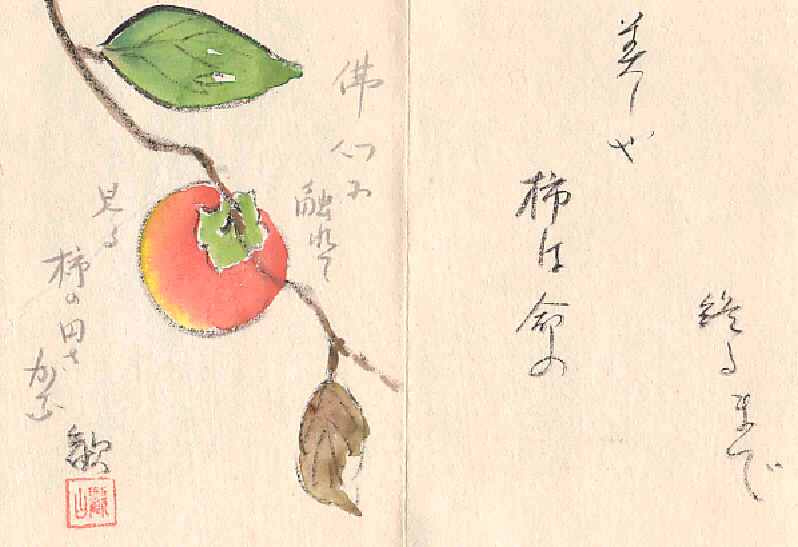 美しや
柿は命の
終るまで
佛心に
融れて
見る
柿の円さ
かな